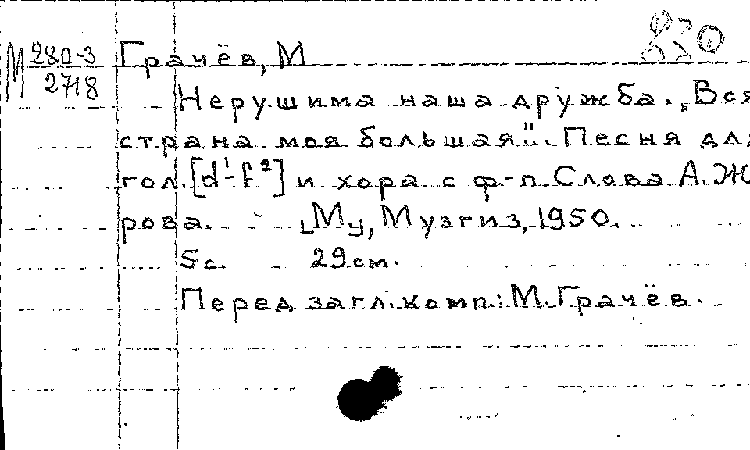 830
М 280-3
2718
Грачёв, М
Нерушима наша дружба. „Вся
страна моя большая". Песня дл
гол. [d¹-f²] и хора с ф-п. Слова А. Ж
рова. [М], Музгиз, 1950.
5 с. 29 см.
Перед загл. комп.: М. Грачёв.